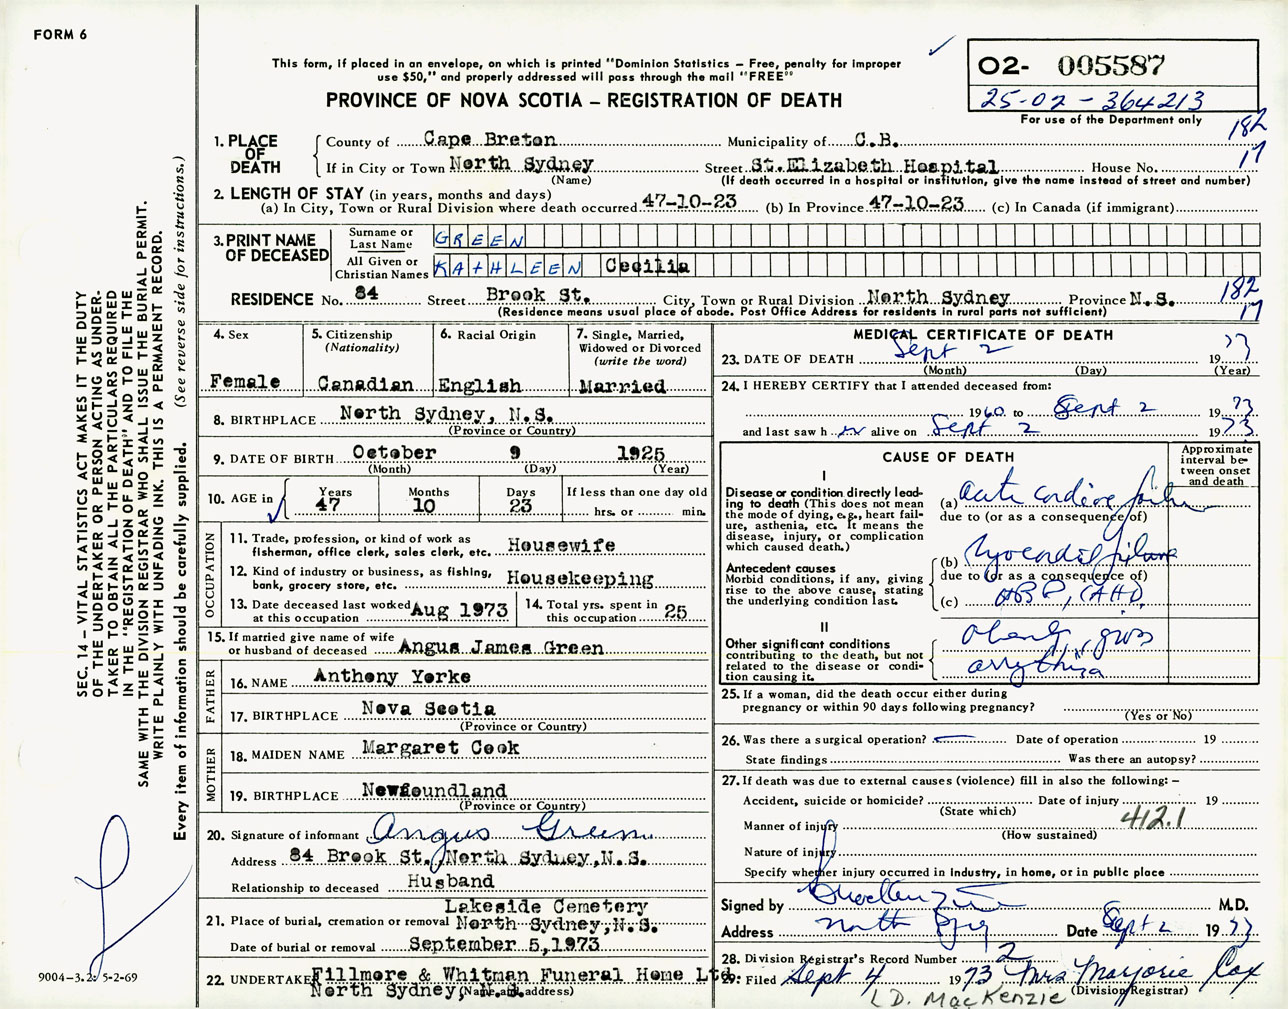 FORM 6
This form, if placed in an envelope, on which is printed "Dominion Statistics — Free, penalty for improper
use $50," and properly addressed will pass through the mail "FREE"
PROVINCE OF NOVA SCOTIA – REGISTRATION OF DEATH
02- 005587
25-02-364213
For use of the Department only
182
17
1. PLACE OF DEATH
County of Cape Breton Municipality of C.B.
If in City or Town North Sydney Street St.Elizabeth Hospital House No.
(Name) (If death occurred in a hospital or institution, give the name instead of street and number)
2. LENGTH OF STAY (in years, months and days)
(a) In City, Town or Rural Division where death occurred 47-10-23 (b) In Province 47-10-23 (c) In Canada (if immigrant)
3. PRINT NAME OF DECEASED
Surname or Last Name GREEN
All Given or Christian Names KATHLEEN Cecilia
RESIDENCE No. 84 Street Brook St. City, Town or Rural Division North Sydney Province N.S.
(Residence means usual place of abode. Post Office Address for residents in rural parts not sufficient)
182
17
4. Sex
Female
5. Citizenship
(Nationality)
Canadian
6. Racial Origin
English
7. Single, Married,
Widowed or Divorced
(write the word)
Married
8. BIRTHPLACE North Sydney, N.S.
(Province or Country)
9. DATE OF BIRTH October 9 1925
(Month) (Day) (Year)
10. AGE in Years 47 Months 10 Days 23 If less than one day old
hrs. or min.
OCCUPATION
11. Trade, profession, or kind of work as
fisherman, office clerk, sales clerk, etc. Housewife
12. Kind of industry or business, as fishing,
bank, grocery store, etc. Housekeeping
13. Date deceased last worked
at this occupation Aug 1973
14. Total yrs. spent in
this occupation 25
15. If married give name of wife
or husband of deceased Angus James Green
FATHER
16. NAME Anthony Yorke
17. BIRTHPLACE Nova Scotia
(Province or Country)
MOTHER
18. MAIDEN NAME Margaret Cook
19. BIRTHPLACE Newfoundland
(Province or Country)
20. Signature of informant Angus Green
Address 84 Brook St., North Sydney, N.S.
Relationship to deceased Husband
Lakeside Cemetery
21. Place of burial, cremation or removal North Sydney, N.S.
Date of burial or removal September 5, 1973
22. UNDERTAKER Fillmore & Whitman Funeral Home Ltd.
North Sydney, N.S. (Name and address)
MEDICAL CERTIFICATE OF DEATH
23. DATE OF DEATH Sept 2 1973
(Month) (Day) (Year)
24. I HEREBY CERTIFY that I attended deceased from:
1960 to Sept 2 1973
and last saw her alive on Sept 2 1973
CAUSE OF DEATH
Approximate
interval be-
tween onset
and death
I
Disease or condition directly lead-
ing to death (This does not mean
the mode of dying, e.g., heart fail-
ure, asthenia, etc. It means the
disease, injury, or complication
which caused death.)
(a) acute cardiac failure
due to (or as a consequence of)
Antecedent causes
Morbid conditions, if any, giving
rise to the above cause, stating
the underlying condition last.
(b) Myocardial failure
due to (or as a consequence of)
(c) HBP, CAHD
II
Other significant conditions
contributing to the death, but not
related to the disease or condi-
tion causing it.
Obesity, gross
arrythmia
25. If a woman, did the death occur either during
pregnancy or within 90 days following pregnancy?
(Yes or No)
26. Was there a surgical operation? Date of operation 19
State findings Was there an autopsy?
27. If death was due to external causes (violence) fill in also the following: –
Accident, suicide or homicide? Date of injury 19
(State which)
412.1
Manner of injury
(How sustained)
Nature of injury
Specify whether injury occurred in industry, in home, or in public place
Signed by M.D.
Address North Syd Date Sept 2 1973
28. Division Registrar's Record Number 2
29. Filed Sept 4 1973 Mrs Marjorie Cox
(Division Registrar)
LD. MacKenzie
SEC. 14 – VITAL STATISTICS ACT MAKES IT THE DUTY
OF THE UNDERTAKER OR PERSON ACTING AS UNDER-
TAKER TO OBTAIN ALL THE PARTICULARS REQUIRED
IN THE "REGISTRATION OF DEATH" AND TO FILE THE
SAME WITH THE DIVISION REGISTRAR WHO SHALL ISSUE THE BURIAL PERMIT.
WRITE PLAINLY WITH UNFADING INK. THIS IS A PERMANENT RECORD.
Every item of information should be carefully supplied. (See reverse side for instructions.)
9004-3.2: 5-2-69